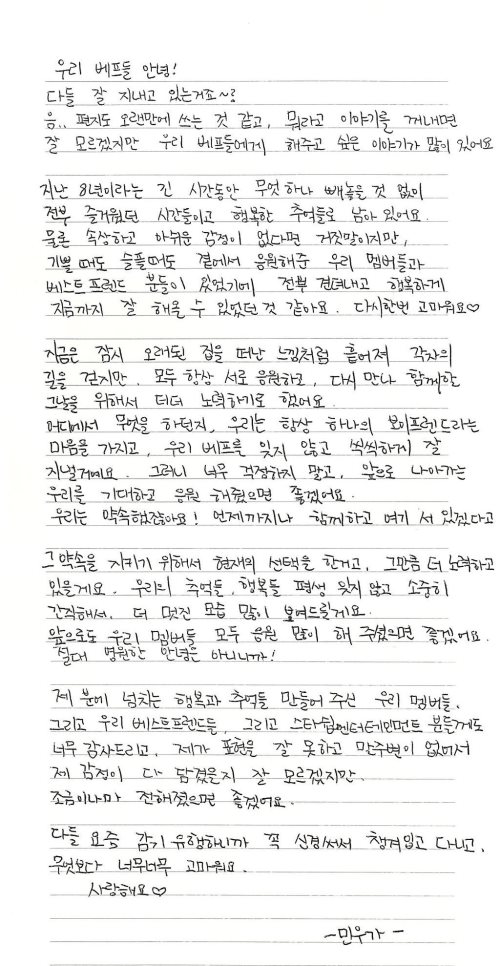 우리 베프들 안녕!
다들 잘 지내고 있는거죠~?
음.. 편지도 오랜만에 쓰는 것 같고, 뭐라고 이야기를 꺼내면
잘 모르겠지만 우리 베프들에게 해주고 싶은 이야기가 많이 있어요
지난 8년이라는 긴 시간동안 무엇 하나 빼놓을 것 없이
전부 즐거웠던 시간들이고 행복한 추억들로 남아 있어요.
물론 속상하고 아쉬운 감정이 없다면 거짓말이지만,
기쁠 때도 슬플때도 곁에서 응원해준 우리 멤버들과
베스트프렌드 분들이 있었기에 전부 견뎌내고 행복하게
지금까지 잘 해올 수 있었던 것 같아요. 다시한번 고마워요♡
지금은 잠시 오래된 집을 떠난 느낌처럼 흩어져 각자의
길을 걷지만, 모두 항상 서로 응원하고, 다시 만나 함께할
그날을 위해서 더더 노력하기로 했어요.
어디에서 무엇을 하던지, 우리는 항상 하나의 보이프렌드라는
마음을 가지고, 우리 베프를 잊지 않고 씩씩하게 잘
지낼거예요. 그러니 너무 걱정하지 말고, 앞으로 나아가는
우리를 기대하고 응원 해줬으면 좋겠어요.
우리는 약속했잖아요! 언제까지나 함께하고 여기 서 있겠다고
그 약속을 지키기 위해서 현재의 선택을 한거고, 그만큼 더 노력하고
있을게요. 우리의 추억들, 행복들 평생 잊지 않고 소중히
간직해서, 더 멋진 모습 많이 보여드릴게요.
앞으로도 우리 멤버들 모두 응원 많이 해 주셨으면 좋겠어요.
절대 영원한 안녕은 아니니까!
제 분에 넘치는 행복과 추억들 만들어 주신 우리 멤버들,
그리고 우리 베스트프렌드들, 그리고 스타쉽엔터테인먼트 분들께도
너무 감사드리고, 제가 표현을 잘 못하고 말주변이 없어서
제 감정이 다 담겼을지 잘 모르겠지만.
조금이나마 전해졌으면 좋겠어요.
다들 요즘 감기 유행하니까 꼭 신경써서 챙겨입고 다니고,
무엇보다 너무너무 고마워요.
사랑해요♡
-민우가-